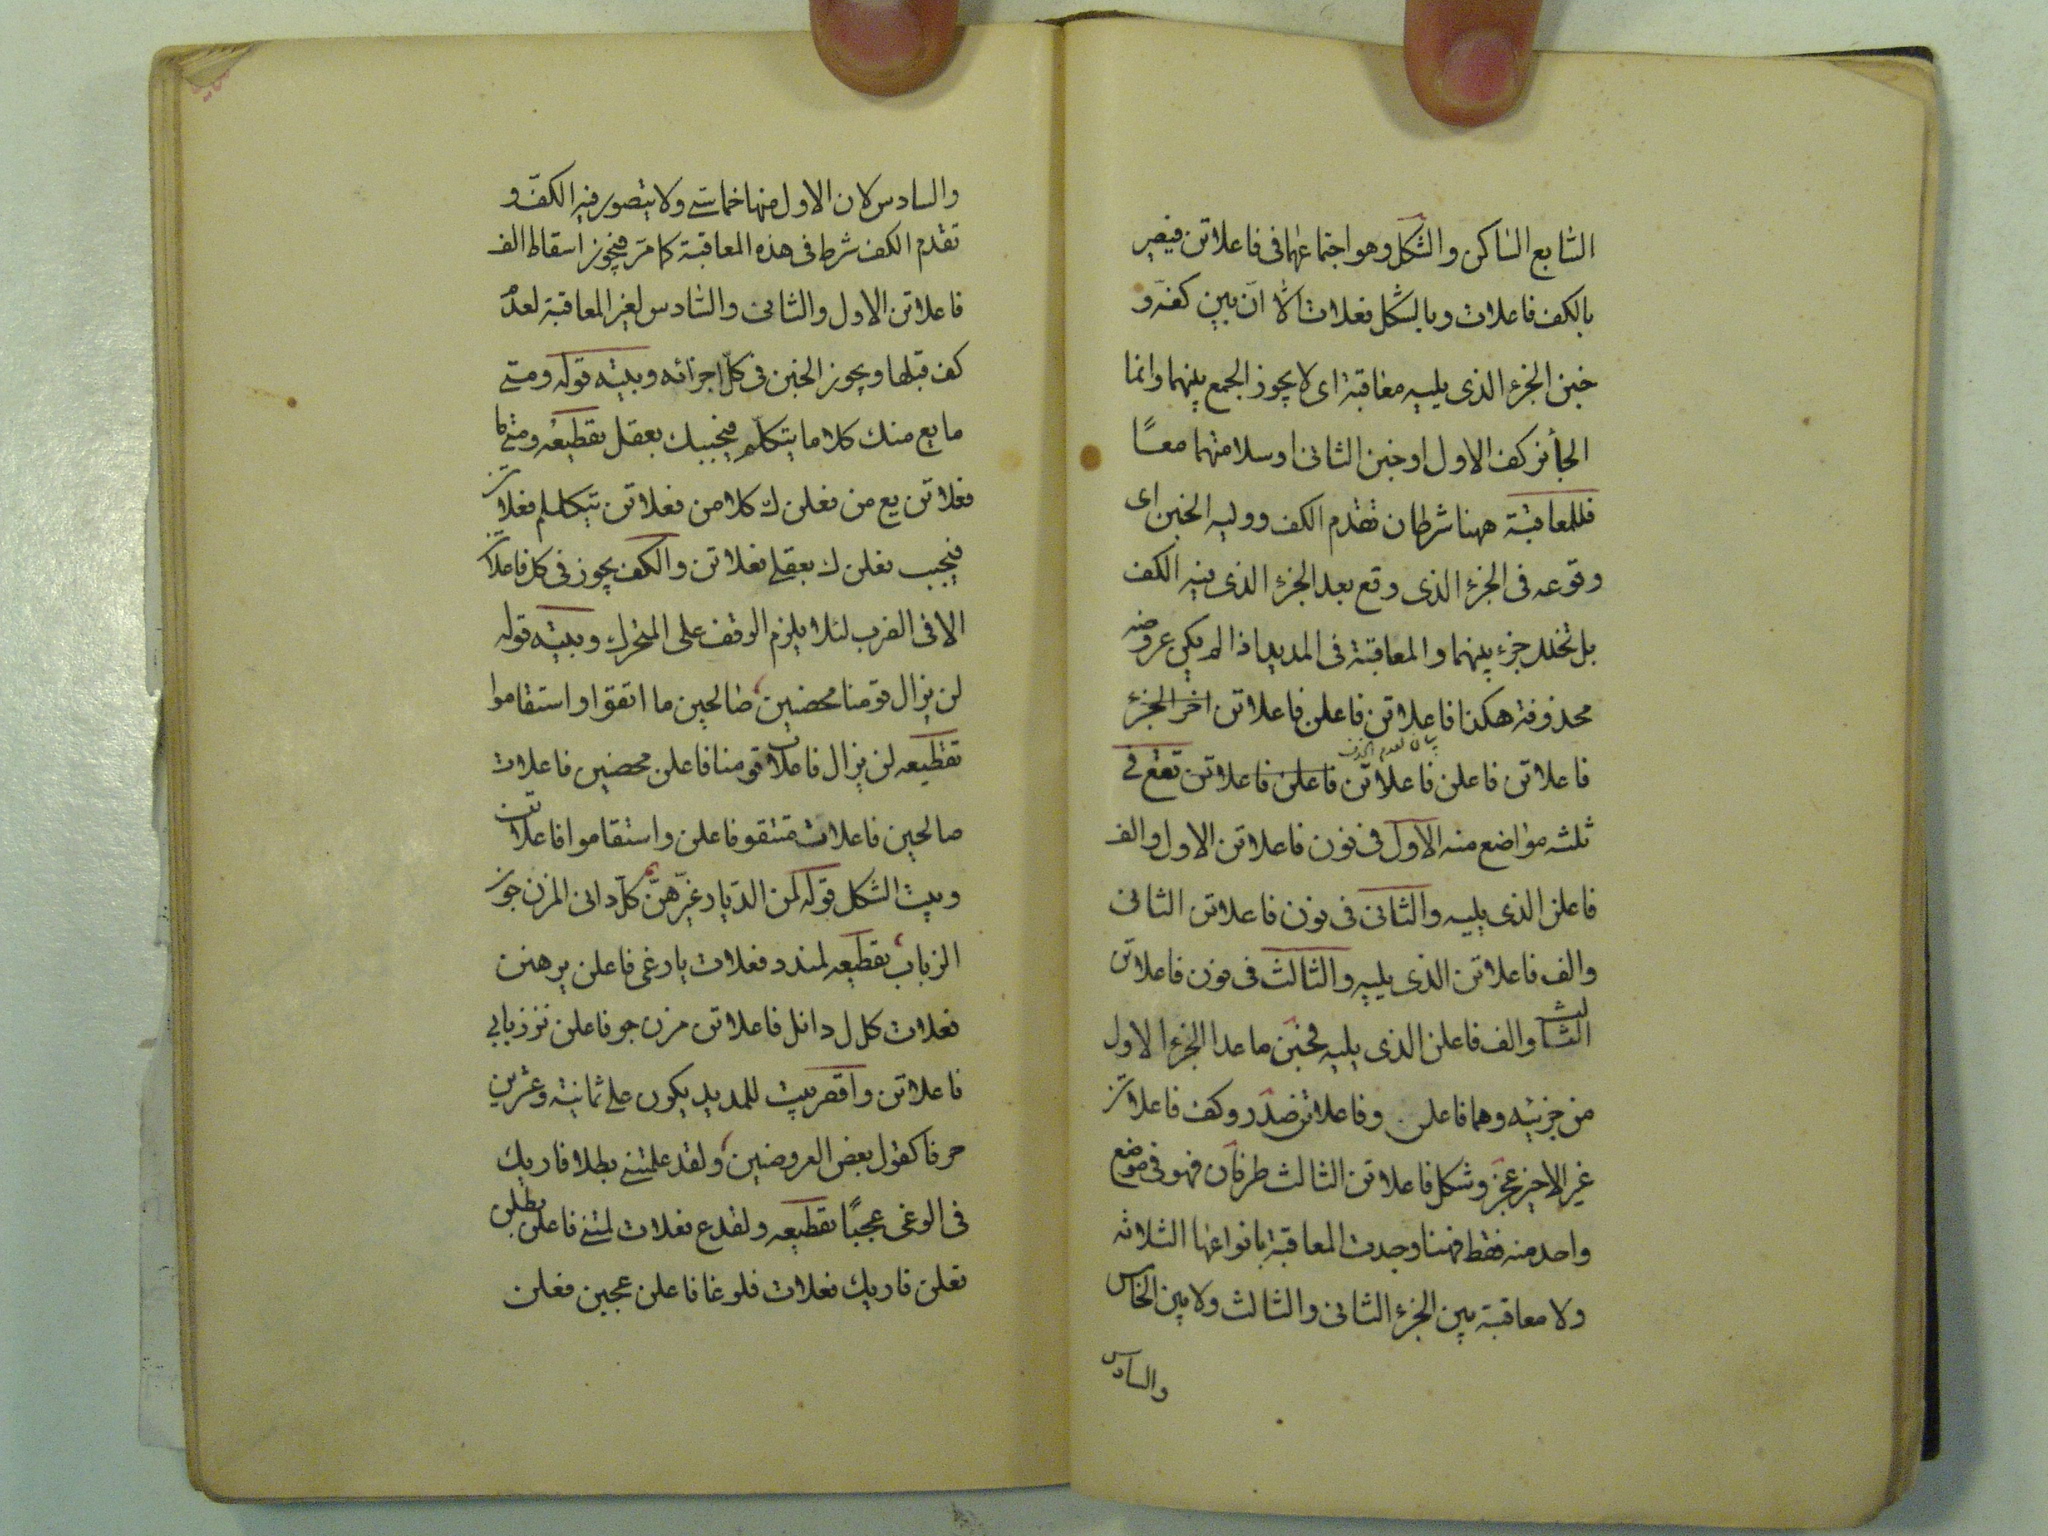 السابع الساكن والشكل وهو اجتماعهما في فاعلاتن فيصير
بالكف فاعلات وبالشكل فعلات الا ان بين كفه و
خبن الجزء الذى يليه معاقبة اى لا يجوز الجمع بينهما وانما
الجائز كف الاول او خبن الثانى او سلامتهما معًا
فللمعاقبة ههنا شرطان تقدم الكف ووليه الخبن اى
وقوعه فى الجزء الذى وقع بعد الجزء الذى فيه الكف
بل تخلل جزء بينهما والمعاقبة فى المديد اذا لم يكن عروضه
محذوفة هكذا فاعلاتن فاعلن فاعلاتن اخر الجزء
بيان لعدم الحذف
فاعلاتن فاعلن فاعلاتن فاعلن فاعلاتن تقع فى
ثلثه مواضع منه الاول فى نون فاعلاتن الاول والف
فاعلن الذى يليه والثانى فى نون فاعلاتن الثانى
والف فاعلاتن الذى يليه والثالث فى نون فاعلاتن
الثالث والف فاعلن الذى يليه فخبن ما عدا الجزء الاول
من جزئيه وهما فاعلن وفاعلاتن صدر وكف فاعلاتن
غير الاخير عجز وشكل فاعلاتن الثالث طرفان فهو فى موضع
واحد منه فقط فههنا وجدت المعاقبة بانواعها الثلاثه
ولا معاقبة بين الجزء الثانى والثالث ولا بين الخامس
والسادس
والسادس لان الاول منها خماسى ولا يتصور فيه الكف و
تقدم الكف شرط فى هذه المعاقبة كما مر فيجوز اسقاط الف
فاعلاتن الاول والثانى والسادس لغير المعاقبة لعدم
كف قبلها ويجوز الخبن فى كل اجزائه وبيته قوله ومتى
ما يع منك كلاما يتكلم فيجيبك بعقل تقطيعه ومتى ما
فعلاتن يع من فعلن ك كلامن فعلاتن يتكللم فعلاتن
فيجيب فعلن ك بعقلى فعلاتن والكف يجوز فى كل فاعلاتن
الا فى الضرب لئلا يلزم الوقف على المتحرك وبيته قوله
لن يزال قومنا مخصبين صالحين ما اتقوا واستقاموا
تقطيعه لن يزال فاعلات قومنا فاعلن مخصبين فاعلات
صالحين فاعلات متتقو فاعلن واستقاموا فاعلاتن
وبيت الشكل قوله لمن الديار غيّرهنّ كلّ دانى المزن جون
الرباب تقطيعه لمندد فعلات يارغى فاعلن يرهنن
فعلات كل ل دانل فاعلاتن مزن جو فاعلن نرربابى
فاعلاتن واقصر بيت للمديد يكون على ثمانية وعشرين
حرفا كقول بعض العروضيين ولقد علمتنى بطلا فاريك
فى الوغى عجبًا تقطيعه ولقدع فعلات لمتنى فاعلن بطلن
فعلن فاريك فعلات فلوغا فاعلن عجبن فعلن